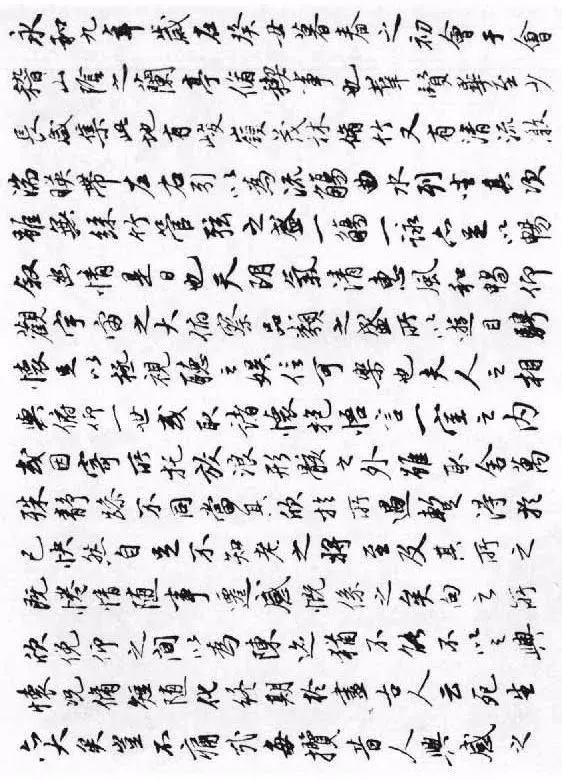 永和九年歲在癸丑暮春之初會于會
稽山陰之蘭亭脩禊事也羣賢畢至少
長咸集此地有峻嶺茂林脩竹又有清流激
湍映帶左右引以為流觴曲水列坐其次
雖無絲竹管弦之盛一觴一詠亦足以暢
叙幽情是日也天朗氣清惠風和暢仰
觀宇宙之大俯察品類之盛所以遊目騁
懷足以極視聽之娛信可樂也夫人之相
與俯仰一世或取諸懷抱悟言一室之內
或因寄所托放浪形骸之外雖取舍萬
殊靜躁不同當其欣於所遇暫得於
己快然自足不知老之將至及其所之
既惓情隨事遷感慨係之矣向之所
欣俛仰之間以為陳迹猶不能不以之興
懷況脩短隨化終期於盡古人云死生
亦大矣豈不痛哉每攬昔人興感之